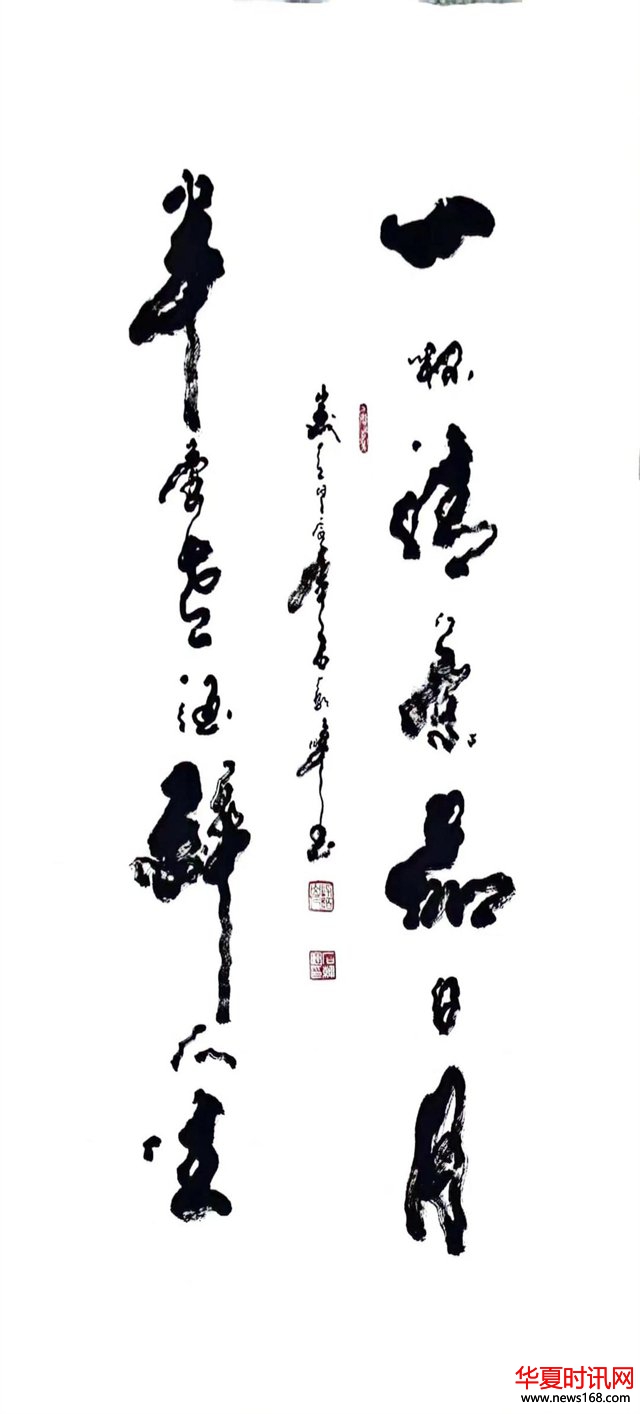 一杯清茶品日月
岁在甲辰 书
半壶老酒醉人生
华夏时讯网
www.news168.com